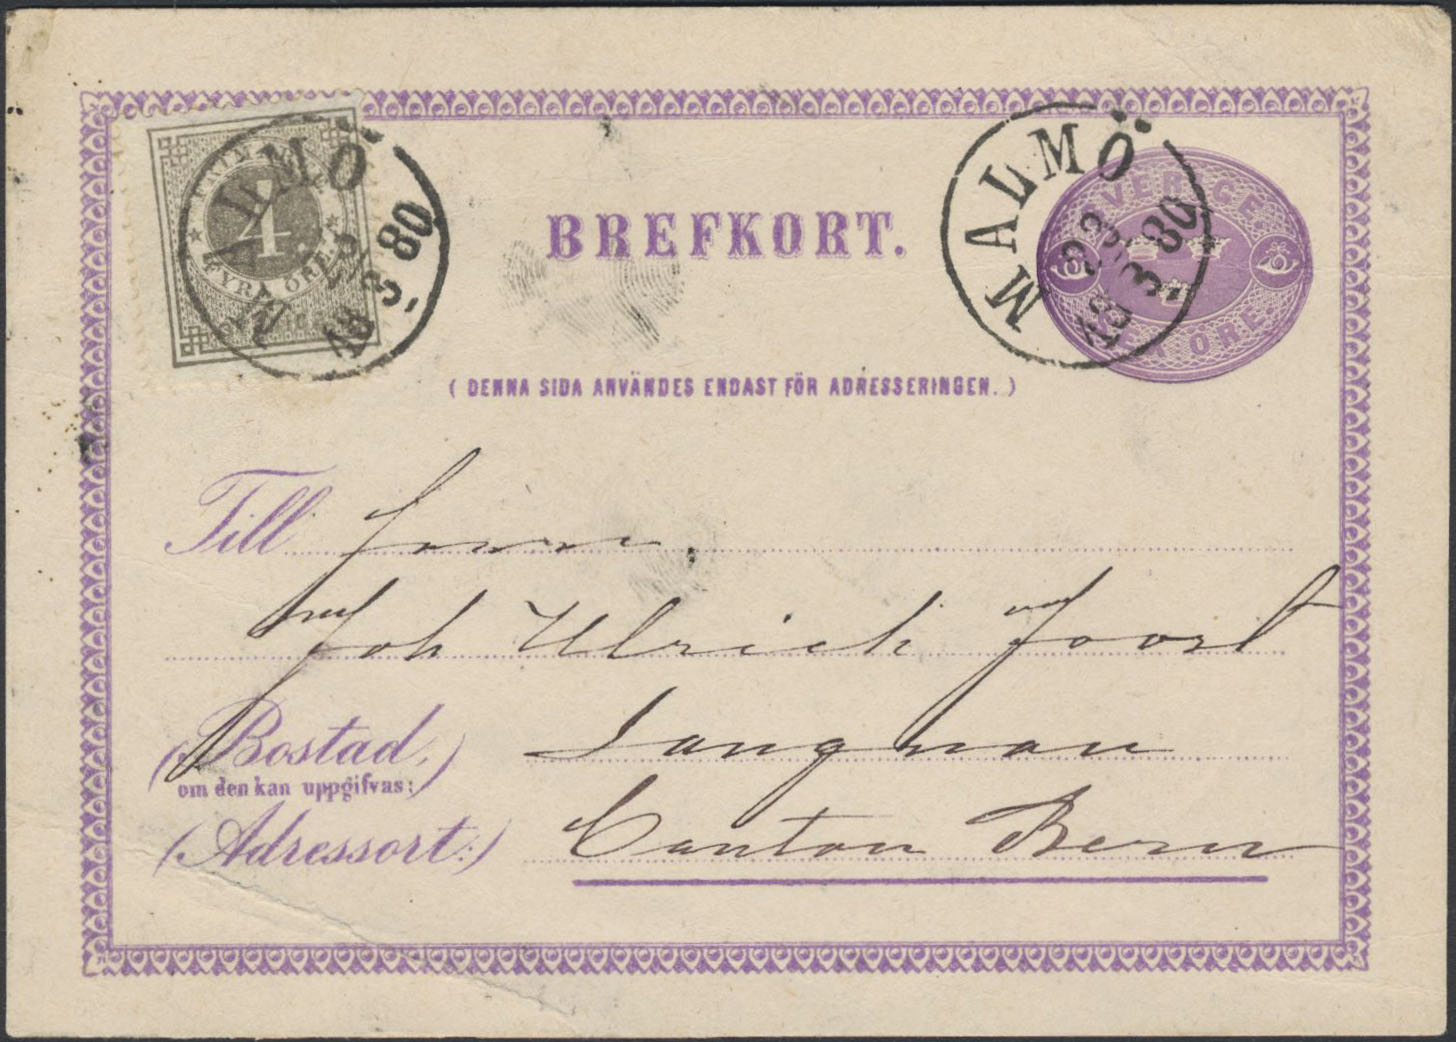 FRIMÄRKE
4
FYRA ÖRE
MALMÖ
23
3
18 80
BREFKORT.
MALMÖ
23
3
18 80
SVERIGE
SEX ÖRE
( DENNA SIDA ANVÄNDES ENDAST FÖR ADRESSERINGEN. )
Till
Joh Ulrich Joost
(Bostad,) Langnau
om den kan uppgifvas:
(Adressort:) Canton Bern